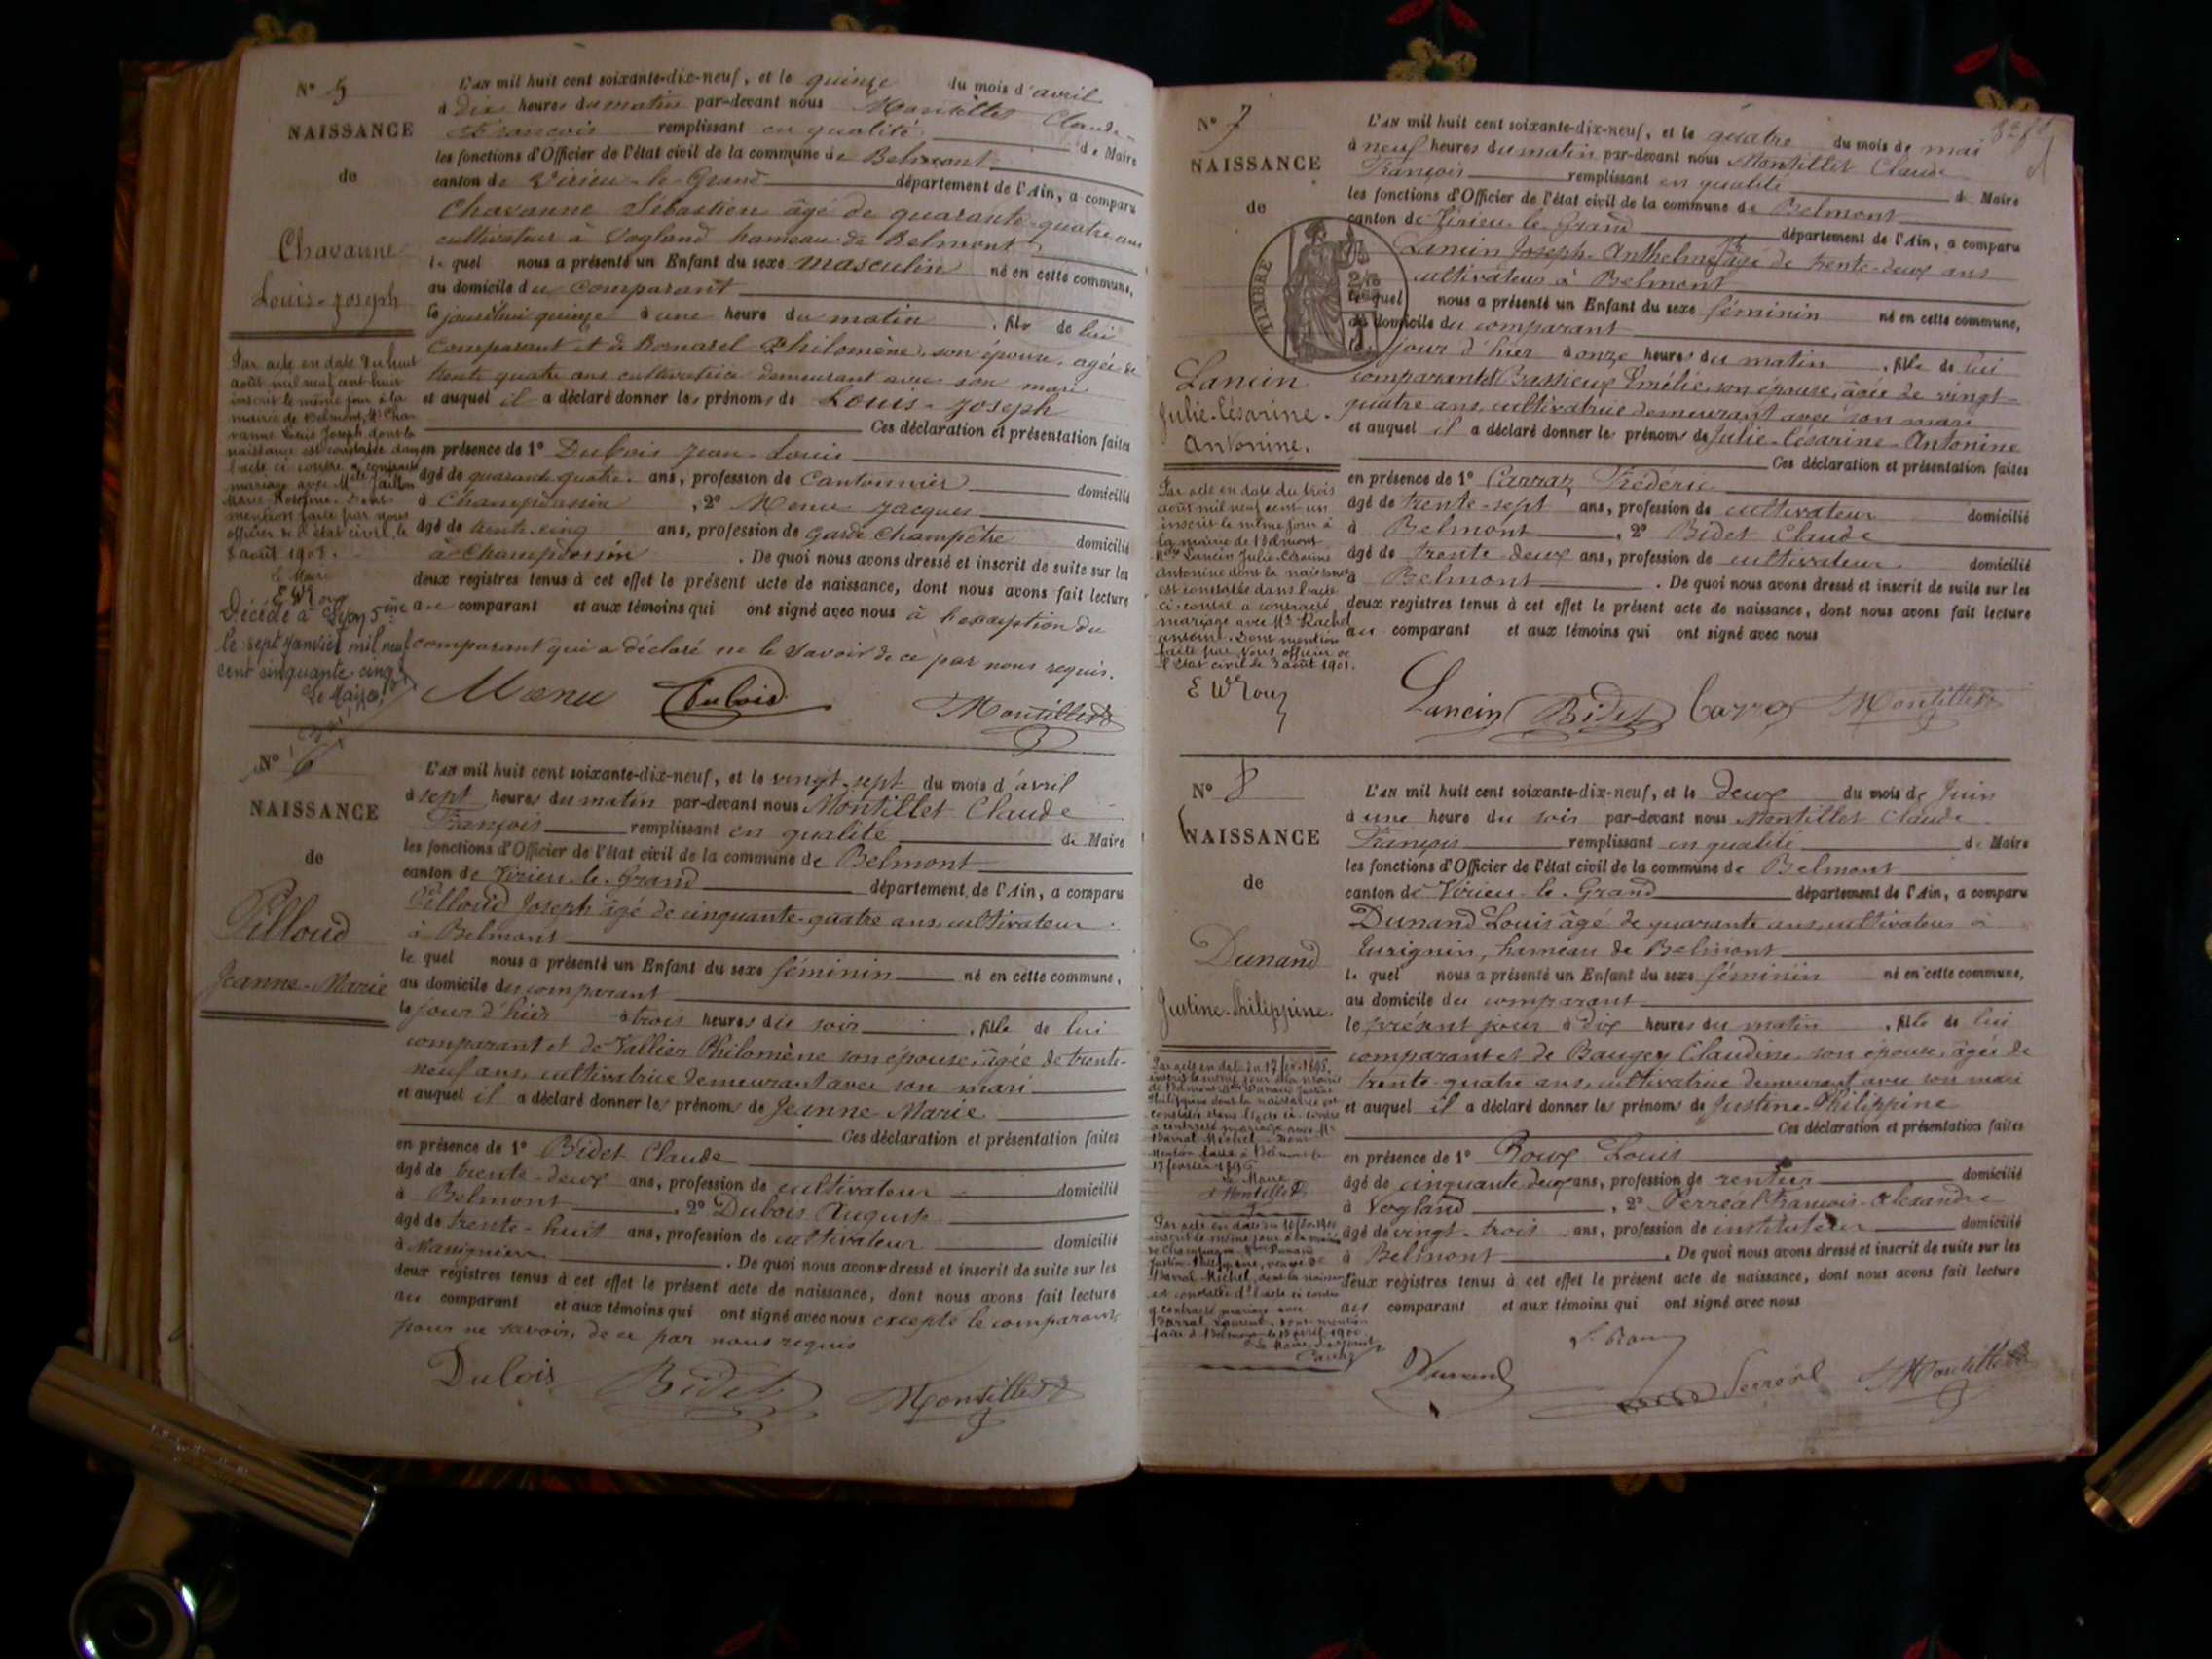 N° 5
NAISSANCE
de
Chavanne
Louis-Joseph
L'AN mil huit cent soixante-dix-neuf, et le quinze du mois d'avril
à dix heures du matin par-devant nous Montillet Claude-
François remplissant en qualité de Maire
les fonctions d'Officier de l'état civil de la commune de Belmont
canton de Virieu-le-Grand département de l'Ain, a comparu
Chavanne Sébastien âgé de quarante-quatre ans
cultivateur à Vogland hameau de Belmont
lequel nous a présenté un Enfant du sexe masculin né en cette commune,
au domicile du comparant
le jourd'hui quinze à une heure du matin, fils de lui
comparant et de Philomène, son épouse, agée de
trente quatre ans cultivatrice demeurant avec son mari
et auquel il a déclaré donner les prénoms de Louis-Joseph
Ces déclaration et présentation faites
en présence de 1° Dubois Jean-Louis
âgé de quarante quatre ans, profession de Cantonnier domicilié
à Champdossin, 2° Menu Jacques
âgé de trente-cinq ans, profession de garde Champêtre domicilié
à Champdossin. De quoi nous avons dressé et inscrit de suite sur les
deux registres tenus à cet effet le présent acte de naissance, dont nous avons fait lecture
au comparant et aux témoins qui ont signé avec nous à l'exception du
comparant qui a déclaré ne le savoir de ce par nous requis.
Menu Dubois Montillet
Par acte en date du huit
août mil neuf cent huit
inscrit le même jour à la
mairie de Belmont, Mr Cha-
vanne Louis Joseph dont la
naissance est constatée dans
l'acte ci contre a contracté
mariage avec Mlle
Marie. Dont
mention faite par nous
officier de l'état civil, le
8 août
Le Maire
E Roux
Décédé à Lyon 5ème
le sept janvier mil neuf
cent cinquante cinq
Le Maire,
N° 6
NAISSANCE
de
Pilloud
Jeanne-Marie
L'AN mil huit cent soixante-dix-neuf, et le vingt-sept du mois d'avril
à sept heures du matin par-devant nous Montillet Claude
François remplissant en qualité de Maire
les fonctions d'Officier de l'état civil de la commune de Belmont
canton de Virieu-le-Grand département de l'Ain, a comparu
Pilloud Joseph âgé de cinquante-quatre ans, cultivateur
à Belmont
lequel nous a présenté un Enfant du sexe féminin né en cette commune,
au domicile du comparant
le jour d'hier à trois heures du soir, fille de lui
comparant et de Vallier Philomène son épouse, âgée de trente-
neuf ans, cultivatrice demeurant avec son mari
et auquel il a déclaré donner les prénoms de Jeanne-Marie
Ces déclaration et présentation faites
en présence de 1° Bidet Claude
âgé de trente-deux ans, profession de cultivateur domicilié
à Belmont, 2° Dubois Auguste
âgé de trente-huit ans, profession de cultivateur domicilié
à. De quoi nous avons dressé et inscrit de suite sur les
deux registres tenus à cet effet le présent acte de naissance, dont nous avons fait lecture
au comparant et aux témoins qui ont signé avec nous excepté le comparant,
pour ne savoir, de ce par nous requis
Dubois Bidet Montillet
N° 7
NAISSANCE
de
TIMBRE
Lancin
Julie-Césarine.
Antonine.
L'AN mil huit cent soixante-dix-neuf, et le quatre du mois de mai
à neuf heures du matin par-devant nous Montillet Claude
François remplissant en qualité de Maire
les fonctions d'Officier de l'état civil de la commune de Belmont
canton de Virieu-le-Grand département de l'Ain, a comparu
Lancin Joseph-Anthelme âgé de trente-deux ans
cultivateur à Belmont
lequel nous a présenté un Enfant du sexe féminin né en cette commune,
au domicile du comparant
le jour d'hier à onze heures du matin, fille de lui
comparant et Brassieux Emélie, son épouse, âgée de vingt-
quatre ans, cultivatrice demeurant avec son mari
et auquel il a déclaré donner les prénoms de Julie-Césarine-Antonine
Ces déclaration et présentation faites
en présence de 1° Carraz Frédéric
âgé de trente-sept ans, profession de cultivateur domicilié
à Belmont, 2° Bidet Claude
âgé de trente deux ans, profession de cultivateur domicilié
à Belmont. De quoi nous avons dressé et inscrit de suite sur les
deux registres tenus à cet effet le présent acte de naissance, dont nous avons fait lecture
au comparant et aux témoins qui ont signé avec nous
Lancin Bidet Carraz Montillet
Par acte en date du trois
août mil neuf cent un
inscrit le même jour à
la mairie de Belmont
Lancin Julie-Césarine
Antonine dont la naissance
est constatée dans l'acte
ci-contre a contracté
mariage avec Mr Rachel
. Dont mention
faite par Nous officier de
l'état civil le 3 août 1901.
E Roux
N° 8
NAISSANCE
de
Dunand
Justine-Philippine.
L'AN mil huit cent soixante-dix-neuf, et le deux du mois de Juin
à une heure du soir par-devant nous Montillet Claude
François remplissant en qualité de Maire
les fonctions d'Officier de l'état civil de la commune de Belmont
canton de Virieu-le-Grand département de l'Ain, a comparu
Dunand Louis âgé de quarante ans, cultivateur à
Lusignin, hameau de Belmont
lequel nous a présenté un Enfant du sexe féminin né en cette commune,
au domicile du comparant
le présent jour à dix heures du matin, fille de lui
comparant et de Baugey Claudine, son épouse, âgée de
trente-quatre ans, cultivatrice demeurant avec son mari
et auquel il a déclaré donner les prénoms de Justine-Philippine
Ces déclaration et présentation faites
en présence de 1° Roux Louis
âgé de cinquante deux ans, profession de rentier domicilié
à Vogland, 2° Perréal François-Alexandre
âgé de vingt-trois ans, profession de instituteur domicilié
à Belmont. De quoi nous avons dressé et inscrit de suite sur les
deux registres tenus à cet effet le présent acte de naissance, dont nous avons fait lecture
au comparant et aux témoins qui ont signé avec nous
Dunand L. Roux Perréal Montillet
Par acte en date du 17
inscrit le même jour à la mairie
de Belmont Dunand Justine
Philippine dont la naissance est
constatée dans l'acte ci-contre
a contracté mariage avec Mr
Barral Michel. Dont
mention faite à Belmont le
17 février
Le Maire
Montillet
Par acte en date du
inscrit le même jour à la mairie
de Champagne Dunand
Justine Philippine, veuve de
Barral Michel, dont la naissance
est constatée ds l'acte ci contre
a contracté mariage avec
Barral Laurent. Dont mention
faite à Belmont le 1900